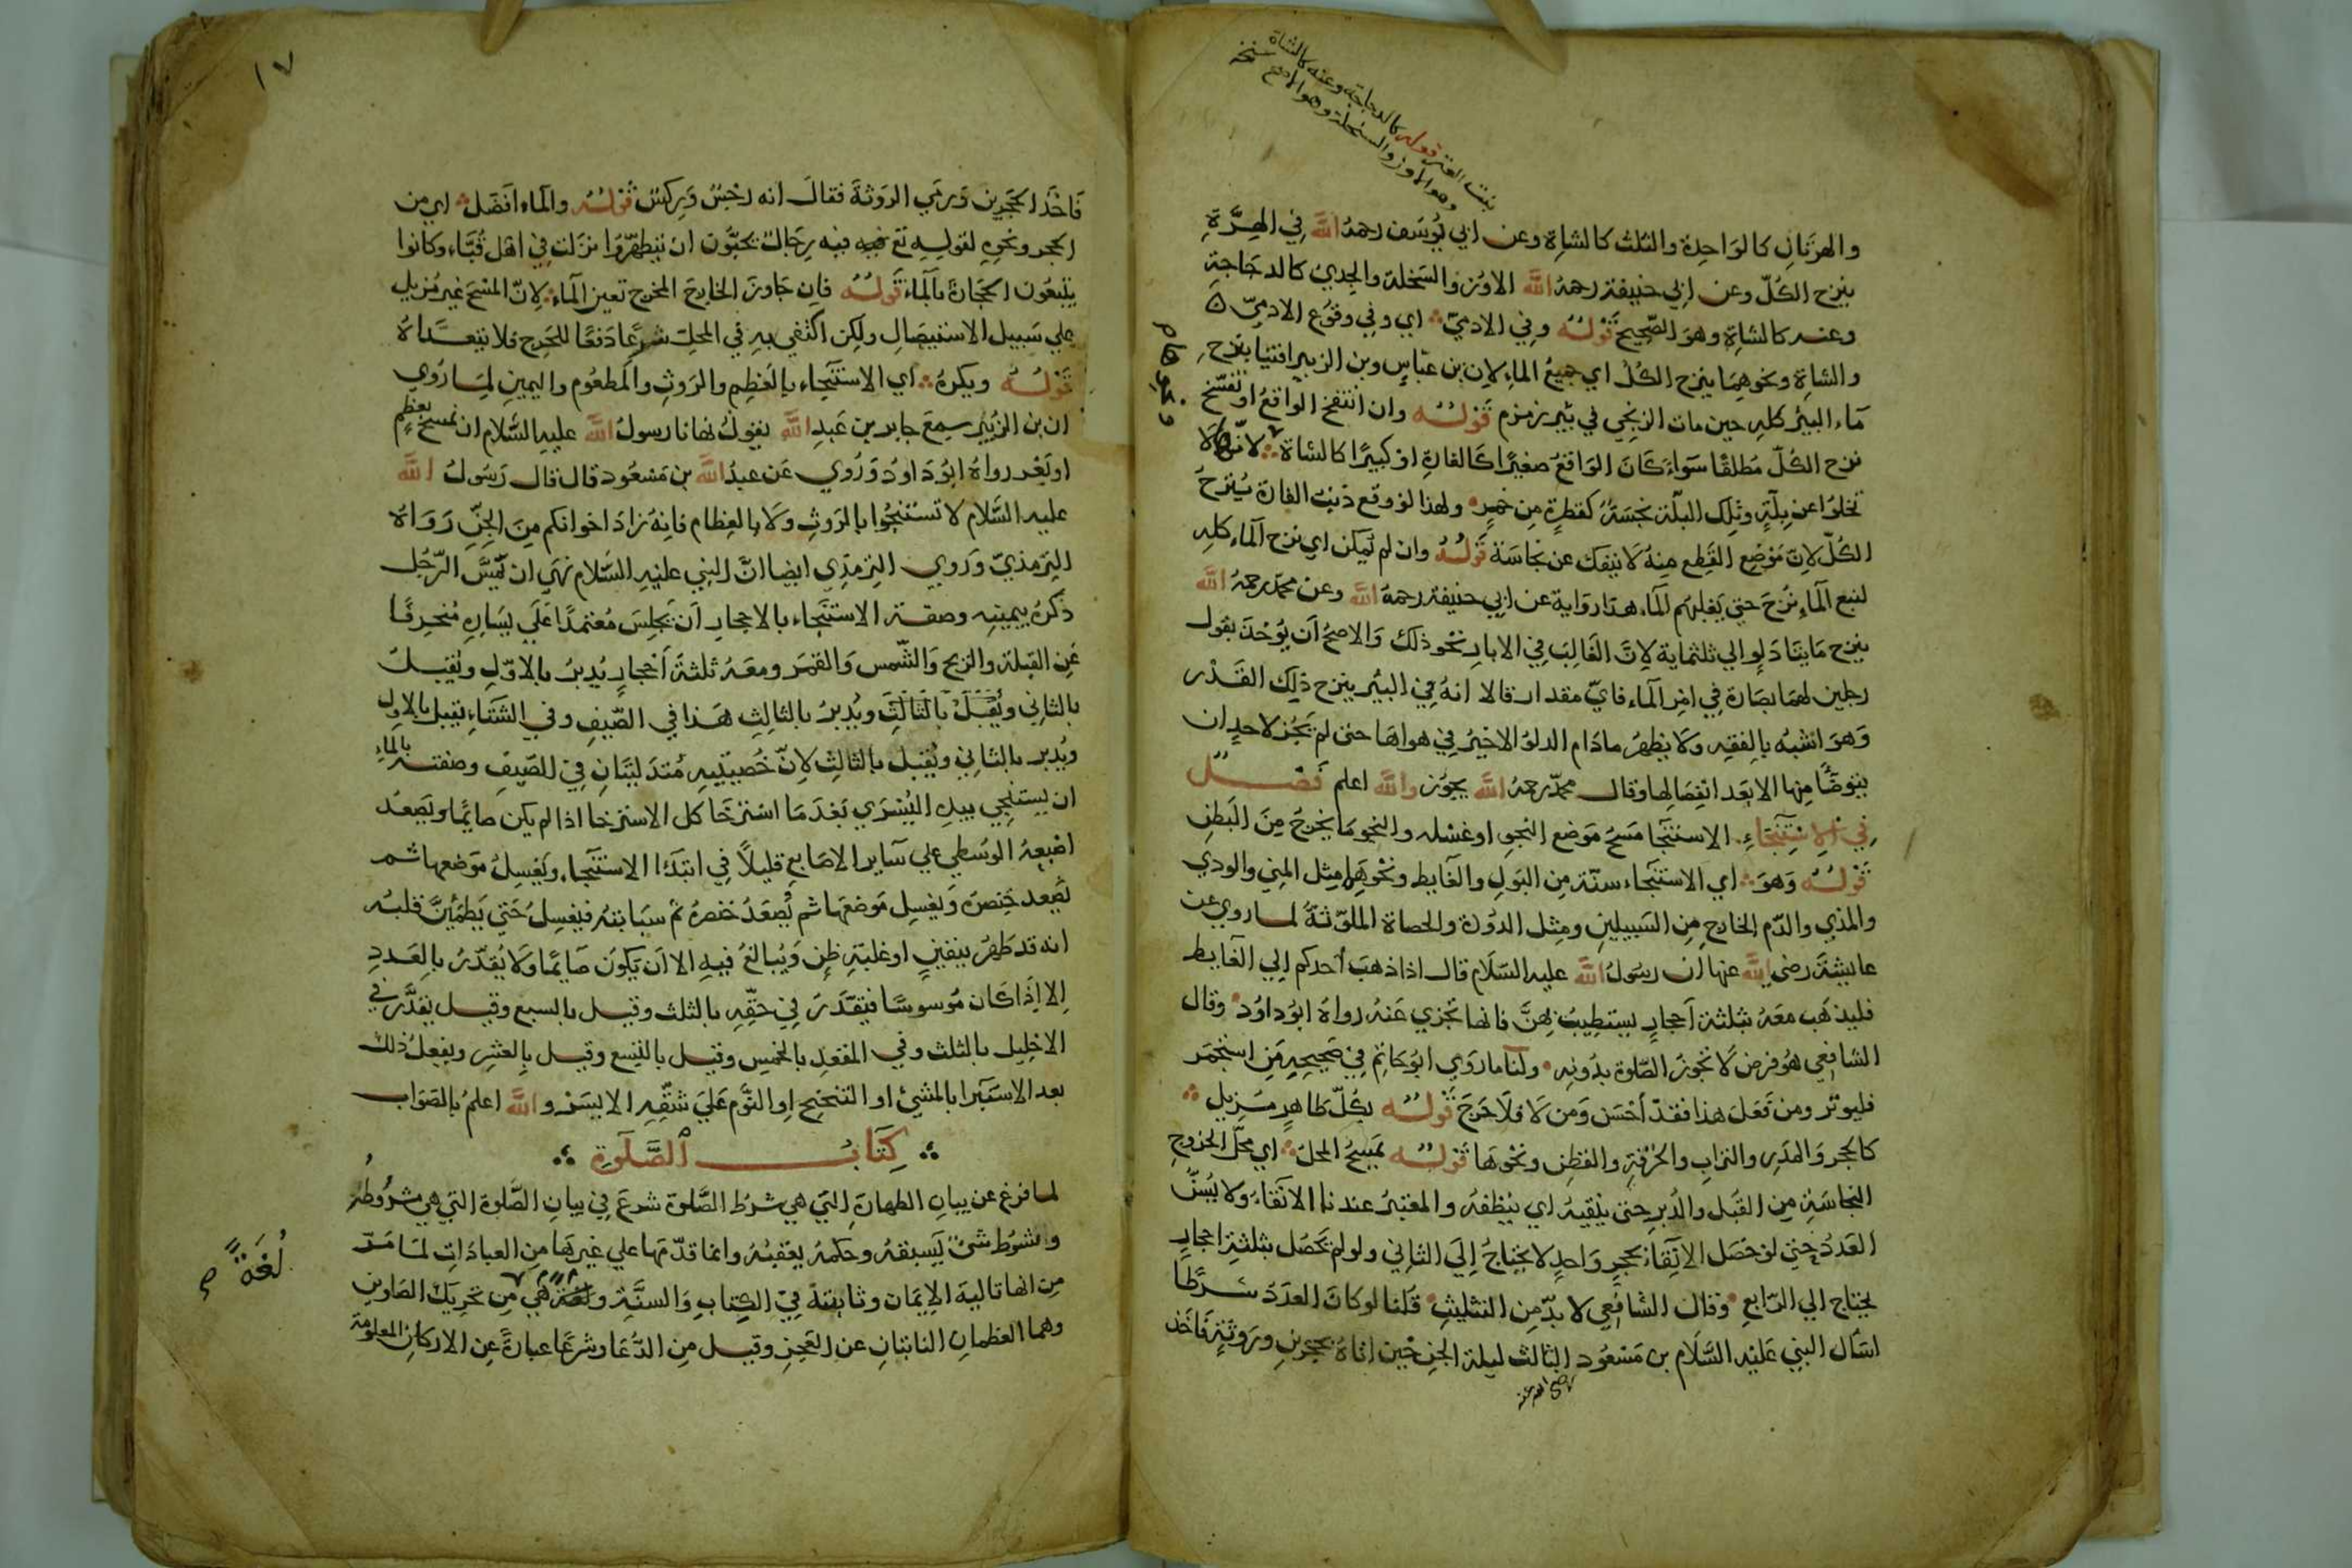 والهرتان كالواحدة والثلث كالشاة وعن ابي يوسف رحمه الله في الهرة
ينزح الكل وعن ابي حنيفة رحمه الله الاوز والسخلة والجدي كالدجاجة
وعنه كالشاة وهو الصحيح قوله وفي الادمي اي وفي وقوع الادمي
والشاة ونحوهما ينزح الكل اي جميع الماء لان بن عباس وبن الزبير افتيا بنزح
ماء البئر كله حين مات الزنجي في بئر زمزم قوله وان انتفخ الواقع او تفسخ
نزح الكل مطلقا سواء كان الواقع صغيرا كالفارة او كبيرا كالشاة لانها لا
تخلوا عن بلة وتلك البلة نجسة كقطرة من خمر ولهذا لو وقع ذنب الفارة ينزح
الكل لان موضع القطع منه لا ينفك عن نجاسة قوله وان لم يمكن اي نزح الماء كله
لنبع الماء نزح حتي يغلبهم الماء هذا رواية عن ابي حنيفة رحمه الله وعن محمد رحمه الله
ينزح مايتا دلو الي ثلثماية لان الغالب في الابار نحو ذلك والاصح ان يؤخذ بقول
رجلين لهما بصارة في امر الماء فاي مقدار قالا انه في البئر ينزح ذلك القدر
وهو اشبه بالفقه ولا يطهر مادام الدلو الاخير في هواها حتى لم يجز لاحد ان
يتوضأ منها الا بعد انفصالها وقال محمد رحمه الله يجوز والله اعلم فصل
في الاستنجاء الاستنجا مسح موضع النجو او غسله والنجو ما يخرج من البطن
قوله وهو اي الاستنجاء سنة من البول والغايط ونحوهما مثل المني والودي
والمذي والدم الخارج من السبيلين ومثل الدودة والحصاة الملوثة لما روي عن
عايشة رضى الله عنها ان رسول الله عليه السلام قال اذا ذهب أحدكم الي الغايط
فليذهب معه بثلثة أحجار يستطيب بهن فانها تجزي عنه رواه ابو داود وقال
الشافعي هو فرض لا تجوز الصلوة بدونه ولنا ما روي ابو حاتم في صحيحه من استجمر
فليوتر ومن فعل هذا فقد أحسن ومن لا فلا حرج قوله بكل طاهر مزيل
كالحجر والمدر والتراب والخرقة والقطن ونحوها قوله يمسح المحل اي محل الخروج
النجاسة من القبل والدبر حتى ينقيه اي ينظفه والمعتبر عندنا الانقاء ولا يسن
العدد حتى لو حصل الانقاء بحجر واحد لا يحتاج إلي الثاني ولو لم يحصل بثلثة احجار
يحتاج الي الرابع وقال الشافعي لا بد من التثليث قلنا لو كان العدد شرطا
لسأل النبي عليه السلام بن مسعود الثالث ليلة الجن حين اتاه بحجرين وروثة فاخذ
رضي الله عنه
١٧
فاخذ الحجرين ورمي الروثة فقال انه رجس وركس قوله والماء افضل اي من
الحجر ونحوه لقوله تع فيه رجال يحبون ان يتطهروا نزلت في اهل قباء وكانوا
يتبعون الحجارة بالماء قوله فان جاوز الخارج المخرج تعين الماء لان المسح غير مزيل
علي سبيل الاستيصال ولكن اكتفي به في المحل شرعا دفعا للحرج فلا يتعداه
قوله ويكره اي الاستنجاء بالعظم والروث والمطعوم واليمين لما روي
ان بن الزبير سمع جابر بن عبد الله يقول نهانا رسول الله عليه السلام ان نمسح بعظم
او بعر رواه ابو داود وروي عن عبد الله بن مسعود قال قال رسول الله
عليه السلام لا تستنجوا بالروث ولا بالعظام فانه زاد اخوانكم من الجن رواه
الترمذي وروي الترمذي ايضا ان النبي عليه السلام نهي ان يمس الرجل
ذكره بيمينه وصفة الاستنجاء بالاحجار ان يجلس معتمدا علي يساره منحرفا
عن القبلة والريح والشمس والقمر ومعه ثلثة أحجار يدبر بالاول ويقبل
بالثاني ويقبل بالثالث ويدبر بالثالث هذا في الصيف وفي الشتاء يقبل بالاول
ويدبر بالثاني ويقبل بالثالث لان خصيتيه متدليتان في الصيف وصفته بالماء
ان يستنجي بيده اليسري بعد ما استرخا كل الاسترخا اذا لم يكن صائما ويصعد
اصبعه الوسطي علي ساير الاصابع قليلا في ابتداء الاستنجاء ويغسل موضعها ثم
يصعد خنصره ويغسل موضعها ثم يصعد خنصره ثم سبابته فيغسل حتي يطمئن قلبه
انه قد طهر بيقين او غلبة ظن ويبالغ فيه الا ان يكون صائما ولا يقدر بالعدد
الا اذا كان موسوسا فيقدر في حقه بالثلث وقيل بالسبع وقيل يقدر في
الاحليل بالثلث وفي المقعد بالخمس وقيل بالتسع وقيل بالعشر ويفعل ذلك
بعد الاستبرا بالمشي او التنحنح او النوم علي شقه الايسر والله اعلم بالصواب
كتاب الصلوة
لما فرغ عن بيان الطهارة التي هي شرط الصلوة شرع في بيان الصلوة التي هي مشروطة
والشرط شئ يسبقه وحكمه يعقبه وانما قدمها علي غيرها من العبادات لما مر
من انها تالية الايمان وثابتة في الكتاب والسنة وهي من تحريك الصلوين
لغة
وهما العظمان الناتيان عن العجز وقيل من الدعا وشرعا عبارة عن الاركان المعلومة